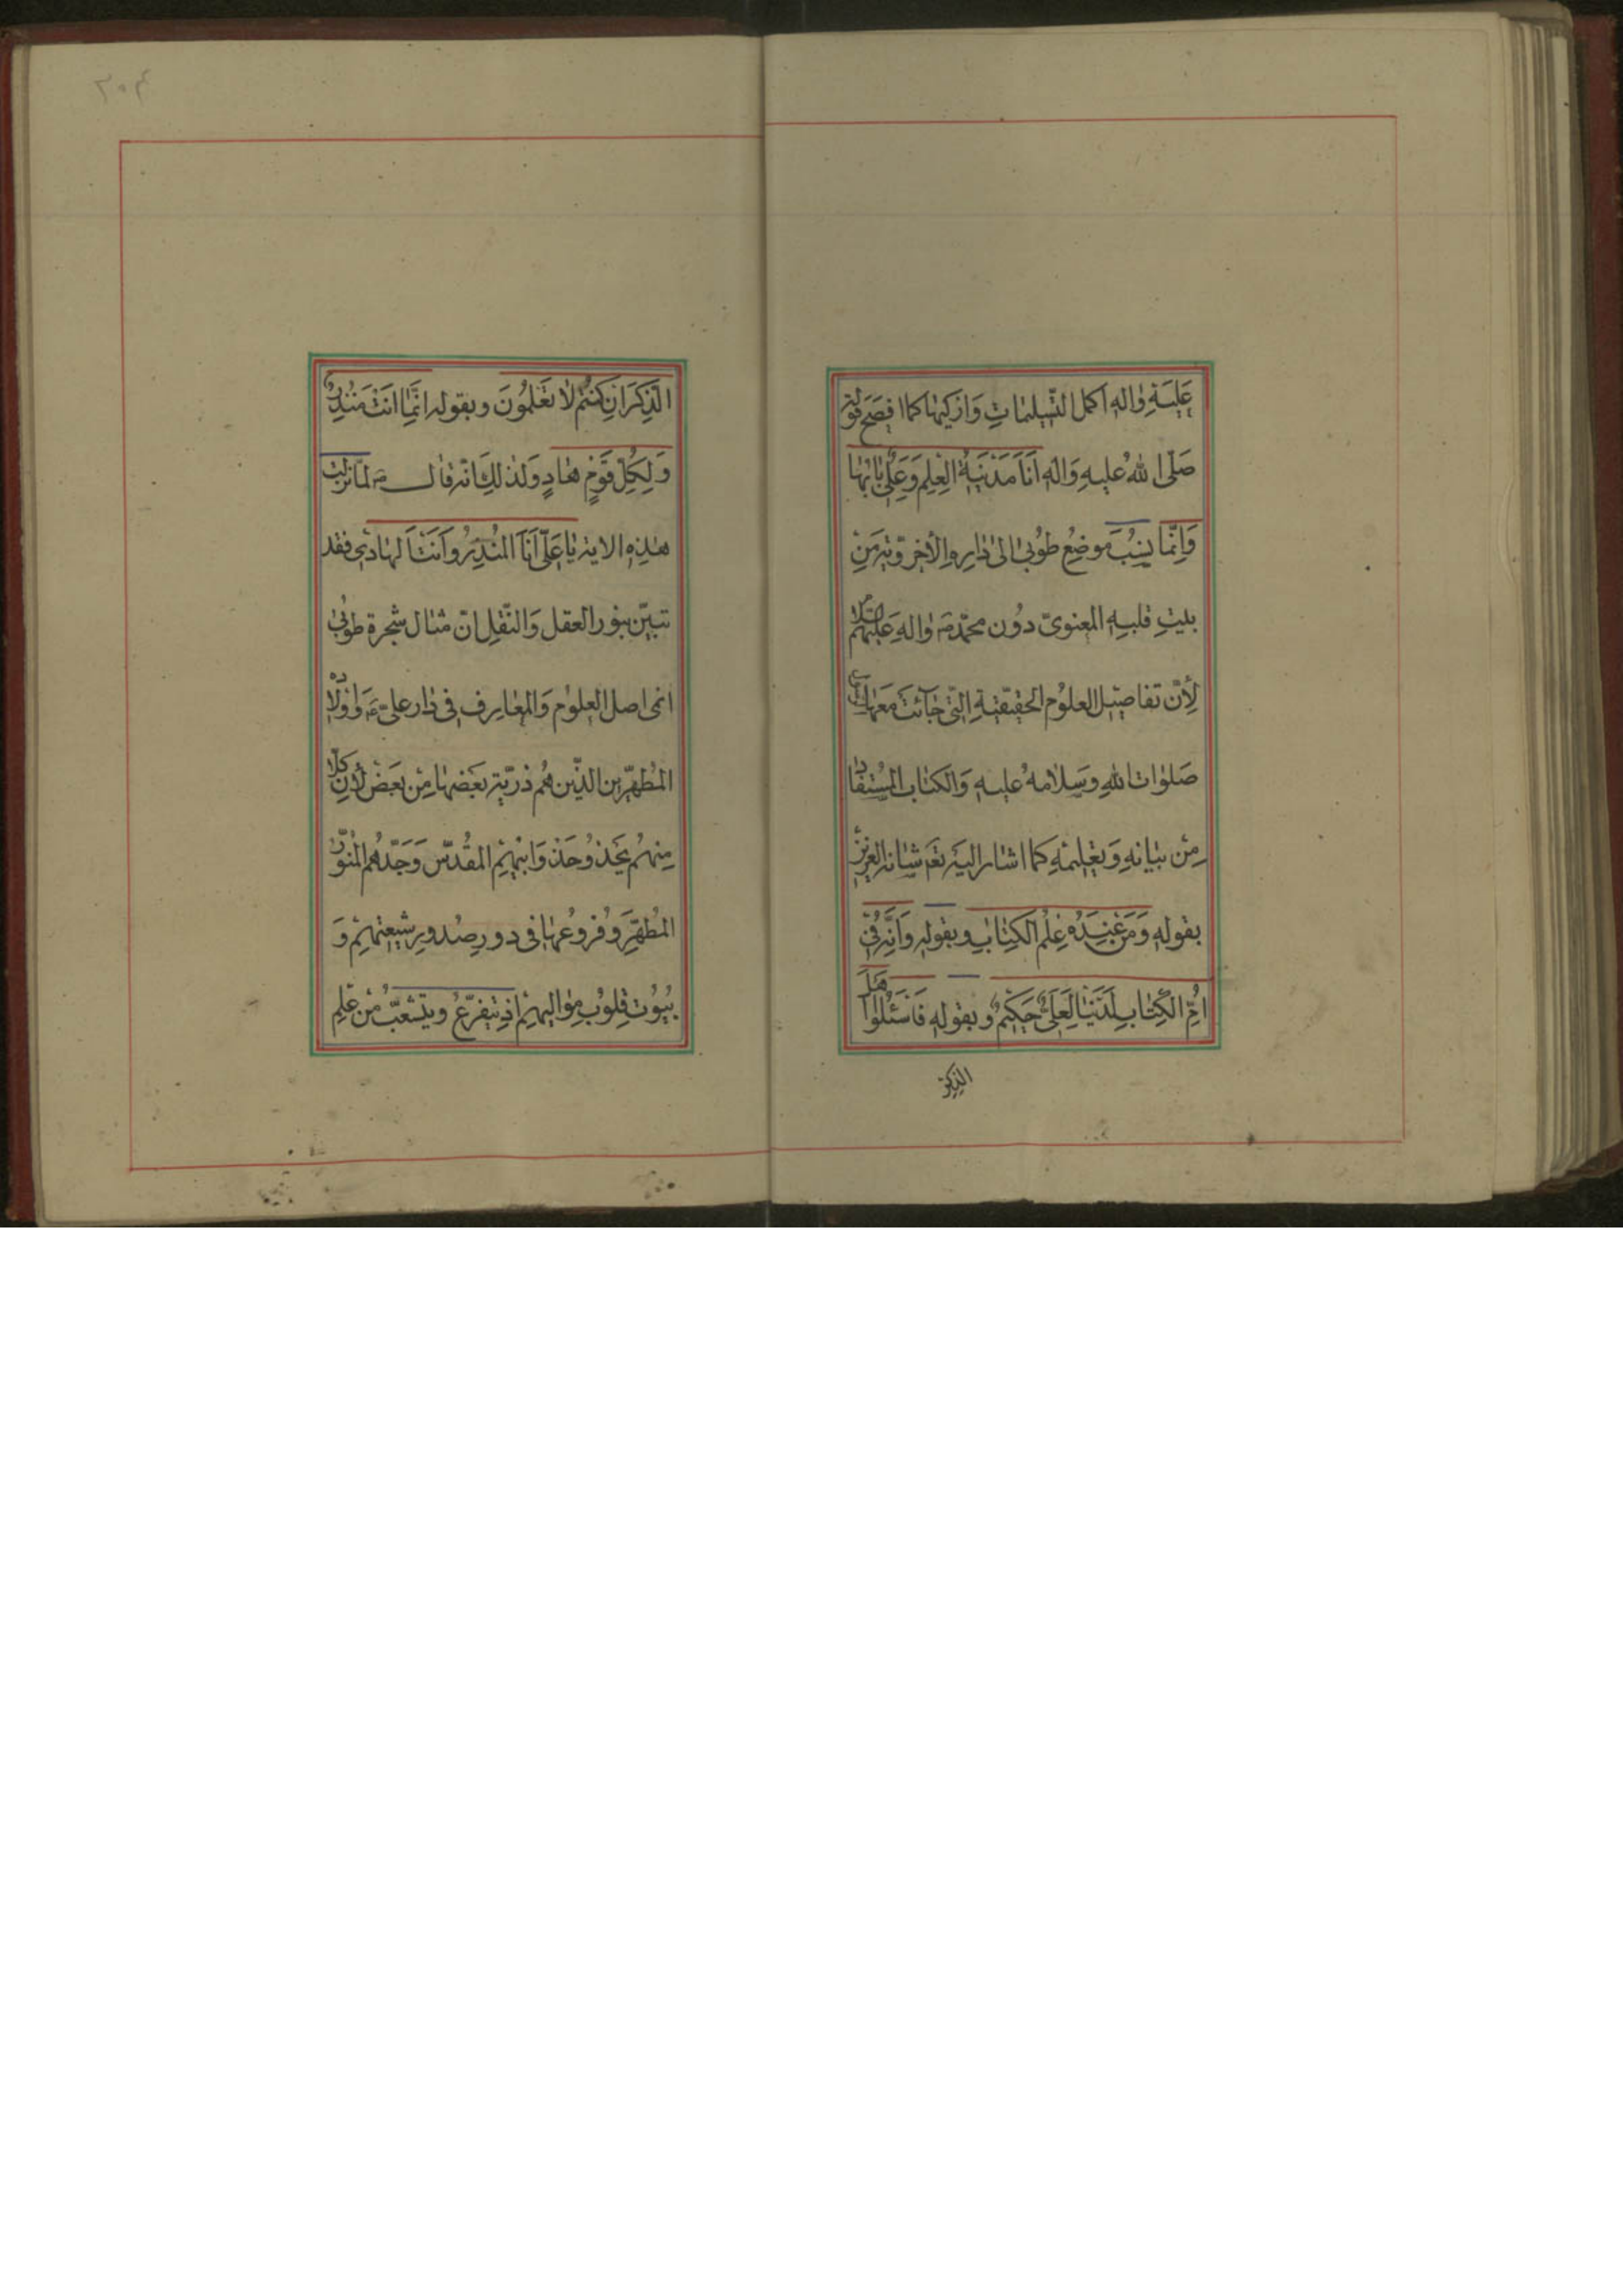 عَلَيْهِ وَالِهِ اَكمل التَّسليماتِ وَازكيها كما افصَحَ قوله
صَلّى اللهُ عليهِ وَالِهِ اَنَا مَدْنيَةُ الْعِلْمِ وَعَلِيٌّ بابُها
وَاِنَّما يَنسُبُ موضِعُ طوُبى الى دارِهِ الأخرَويّة مِن
بيتِ قلبهِ المعنويّ دوُن محمّد ص وَالِهِ عَلَيْهِمُ السّلام
لِأنّ تفاصيل العلوُم الحقيقيةِ الّتي جائتَ مَعَها
صَلوات اللهِ وسَلامهُ عليهِ وَالكتاب المُستفاد
مِنْ بيانهِ وَتعليمهِ كما اشار اليه تعَ شانه العزيز
بقوله وَمَنْ عِنْدَهُ عِلْمُ الْكِتابِ وبقوله وَاِنَّهُ فِي
اُمِّ الْكِتابِ لَدَيْنا لَعَلِيٌّ حَكيمٌ وبقوله فَاسْئَلُوا اَهْلَ
الذِّكْرِ
الذِّكْرِ اِنْ كُنْتُمْ لا تَعْلَمُونَ وبقوله اِنَّما اَنْتَ مُنْذِرٌ
وَلِكُلِّ قَوْمٍ هادٍ وَلذلِكَ انّه قال ص لمّا نزلت
هذِهِ الاية يا عَلِيّ اَنَا الْمُنْذِرُ وَاَنْتَ الهادي فقد
تبيّن بنور العقل وَالنّقلِ انّ مثال شجرة طوُبى
اعنى اصل العلوُم وَالمعارِف في دار عليّ ع وَاَوْلادِه
المُطهّرين الذّين هُم ذرّيّة بَعْضها مِن بَعْض لأنّ كلّا
مِنهُم يَحْذُو حَذْوَ ابيهِمُ المقُدّس وَجَدّهُم المُنوّر
المُطَهَّر وَفُروُعها في دور صُدورِ شيعتهِمْ وَ
بُيُوُت قلوُبِ مواليهِمْ اذ يتفَرّعُ ويتَشَعّبُ مِنْ عِلْمِ